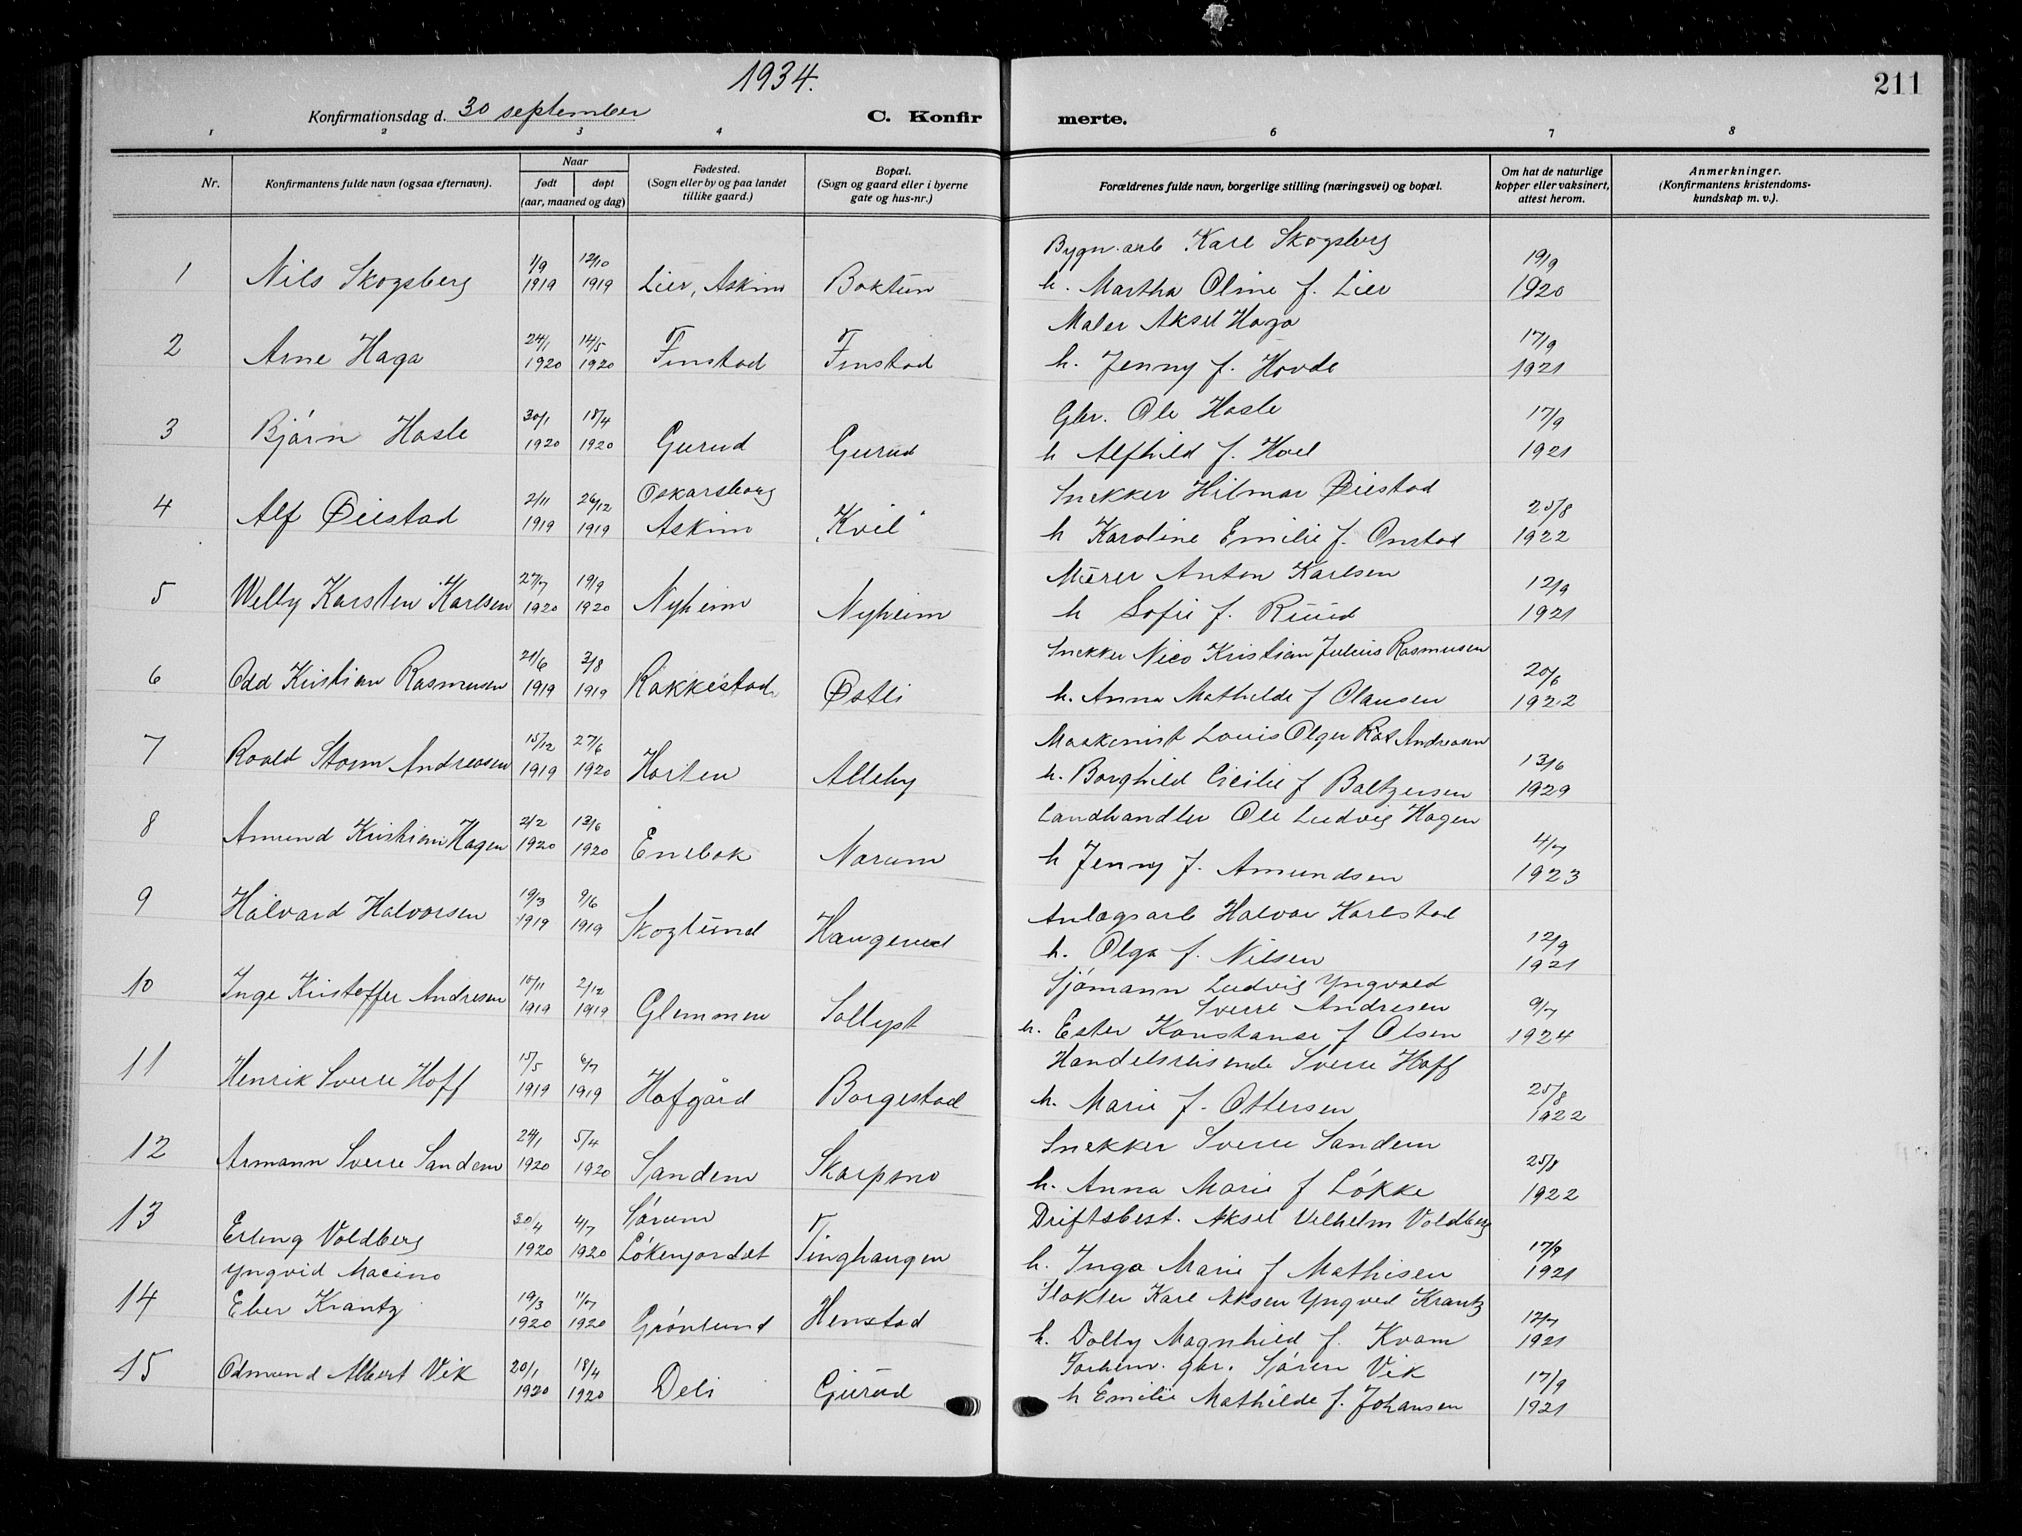 1934.
211
Konfirmationsdag d. 30 september
C. Konfir merte.
1 2 3 4 6 7 8
Nr. Konfirmantens fulde navn (ogsaa efternavn). Naar født døpt (aar, maaned og dag) Fødested. (Sogn eller by og paa landet tillike gaard.) Bopæl. (Sogn og gaard eller i byerne gate og hus-nr.) Forældrenes fulde navn, borgerlige stilling (næringsvei) og bopæl. Om hat de naturlige kopper eller vaksinert, attest herom. Anmerkninger. (Konfirmantens kristendoms-kundskap m. v.).
1 Nils Skogsberg 1/9 1919 12/10 1919 Lier, Askim Boktun Bygn. arb Karl Skogsberg
h. Martha Oline f. Lier 19/9 1920
2 Arne Haga 24/1 1920 14/5 1920 Finstad Finstad Maler Aksel Haga
h. Jenny f. Hovde 17/9 1921
3 Bjørn Hasle 30/1 1920 18/4 1920 Gurud Gurud Gbr. Ole Hasle
h Alfhild f. Hoel 17/9 1921
4 Alf Øiestad 2/11 1919 26/12 1919 Oskarsborg Askim "Kvil" Snekker Hilmar Øiestad
h Karoline Emilie f. Onstad 25/8 1922
5 Willy Karsten Karlsen 27/7 1920 19/9 1920 Nyheim Nyheim Murer Anton Karlsen
h Sofie f. Ruud 12/9 1921
6 Odd Kristian Rasmusen 21/6 1919 3/8 1919 Rakkestad Østli Snekker Nico Kristian Julius Rasmusen
h. Anna Mathilde f Olausen 20/6 1922
7 Roald Storm Andreasen 15/12 1919 27/6 1920 Horten Alleby Maskinist Louis Olger Andreasen
h. Borghild Cicilie f Baltzersen 13/6 1929
8 Amund Kristian Hagen 2/2 1920 13/6 1920 Enebak Narum Landhandler Ole Ludvig Hagen
h Jenny f. Amundsen 4/7 1923
9 Halvard Halvorsen 19/3 1919 9/6 1919 Skoglund Haugerud Anlægsarb Halvor Karlstad
h. Olga f. Nilsen 12/9 1921
10 Inge Kristoffer Andresen 10/11 1919 2/12 1919 Glemmen Sollyst Sjømann Ludvig Yngvald
Sverre Andresen
h. Ester Konstanse f Olsen 9/7 1924
11 Henrik Sverre Hoff 15/5 1919 6/7 1919 Hofgård Borgestad Handelsreisende Sverre Hoff
h. Marie f. Ottersen 25/8 1922
12 Armann Sverre Sandem 24/1 1920 5/4 1920 Sandem Skarpsno Snekker Sverre Sandem
h. Anna Marie f Løkke 25/8 1922
13 Erling Voldberg 30/4 1920 4/7 1920 Sørum Løkenjordet Tinghaugen Driftsbest. Aksel Vilhelm Voldberg
h. Inga Marie f Mathisen 17/9 1921
14 Yngvid Macino
Eber Krantz 19/3 1920 11/7 1920 Grønlund Henstad Slakter Karl Aksen Yngved Krantz
h. Dolly Magnhild f. Kvam 12/7 1921
15 Odmund Albert Vik 20/1 1920 18/4 1920 Deli Gurud gbr. Søren Vik
h Emilie Mathilde f. Johansen 17/9 1921